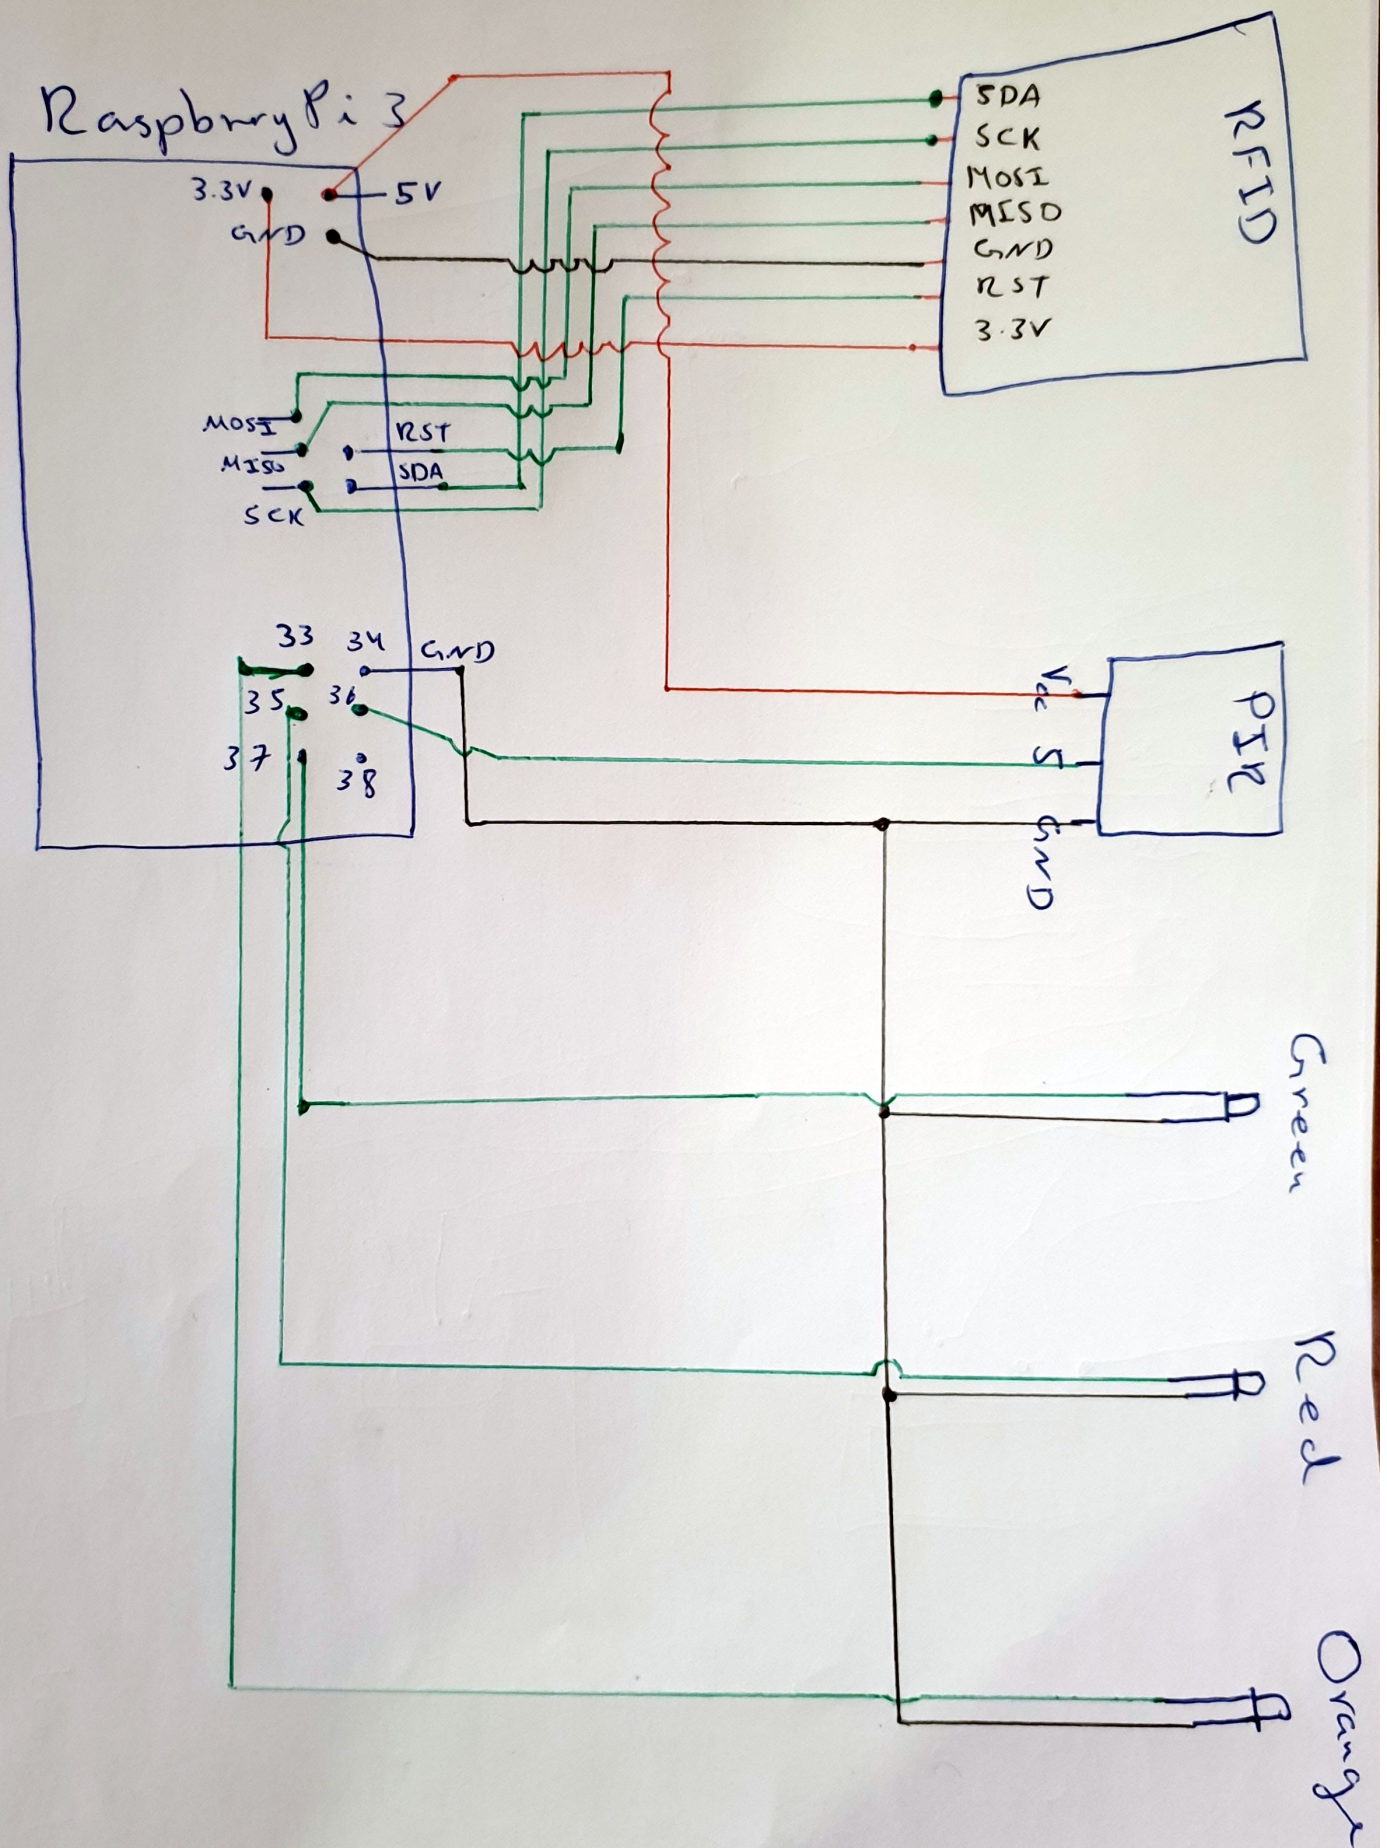 RaspburyPi 3
3.3V
5V
GND
MOSI
MISO
SCK
RST
SDA
33
34
GND
35
36
37
38
SDA
SCK
MOSI
MISO
GND
RST
3.3V
RFID
Vcc
S
GND
PIR
Green
Red
Orange